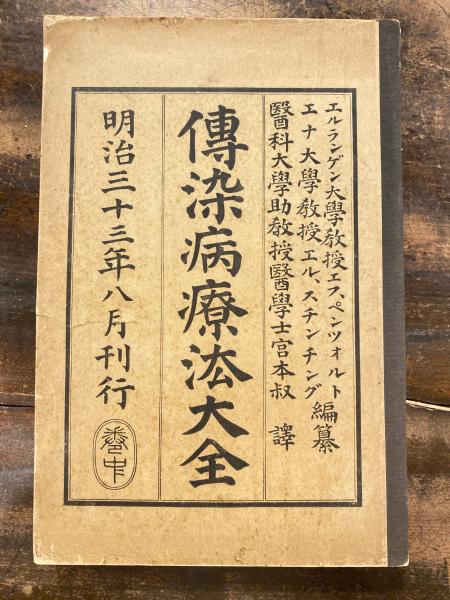 エルランゲン大學教授エフ、ペンツォルト
エナ大學教授エル、スチンチング
編纂
醫科大學助教授醫學士宮本叔 譯
傳染病療法大全
明治三十三年八月刊行
卷中